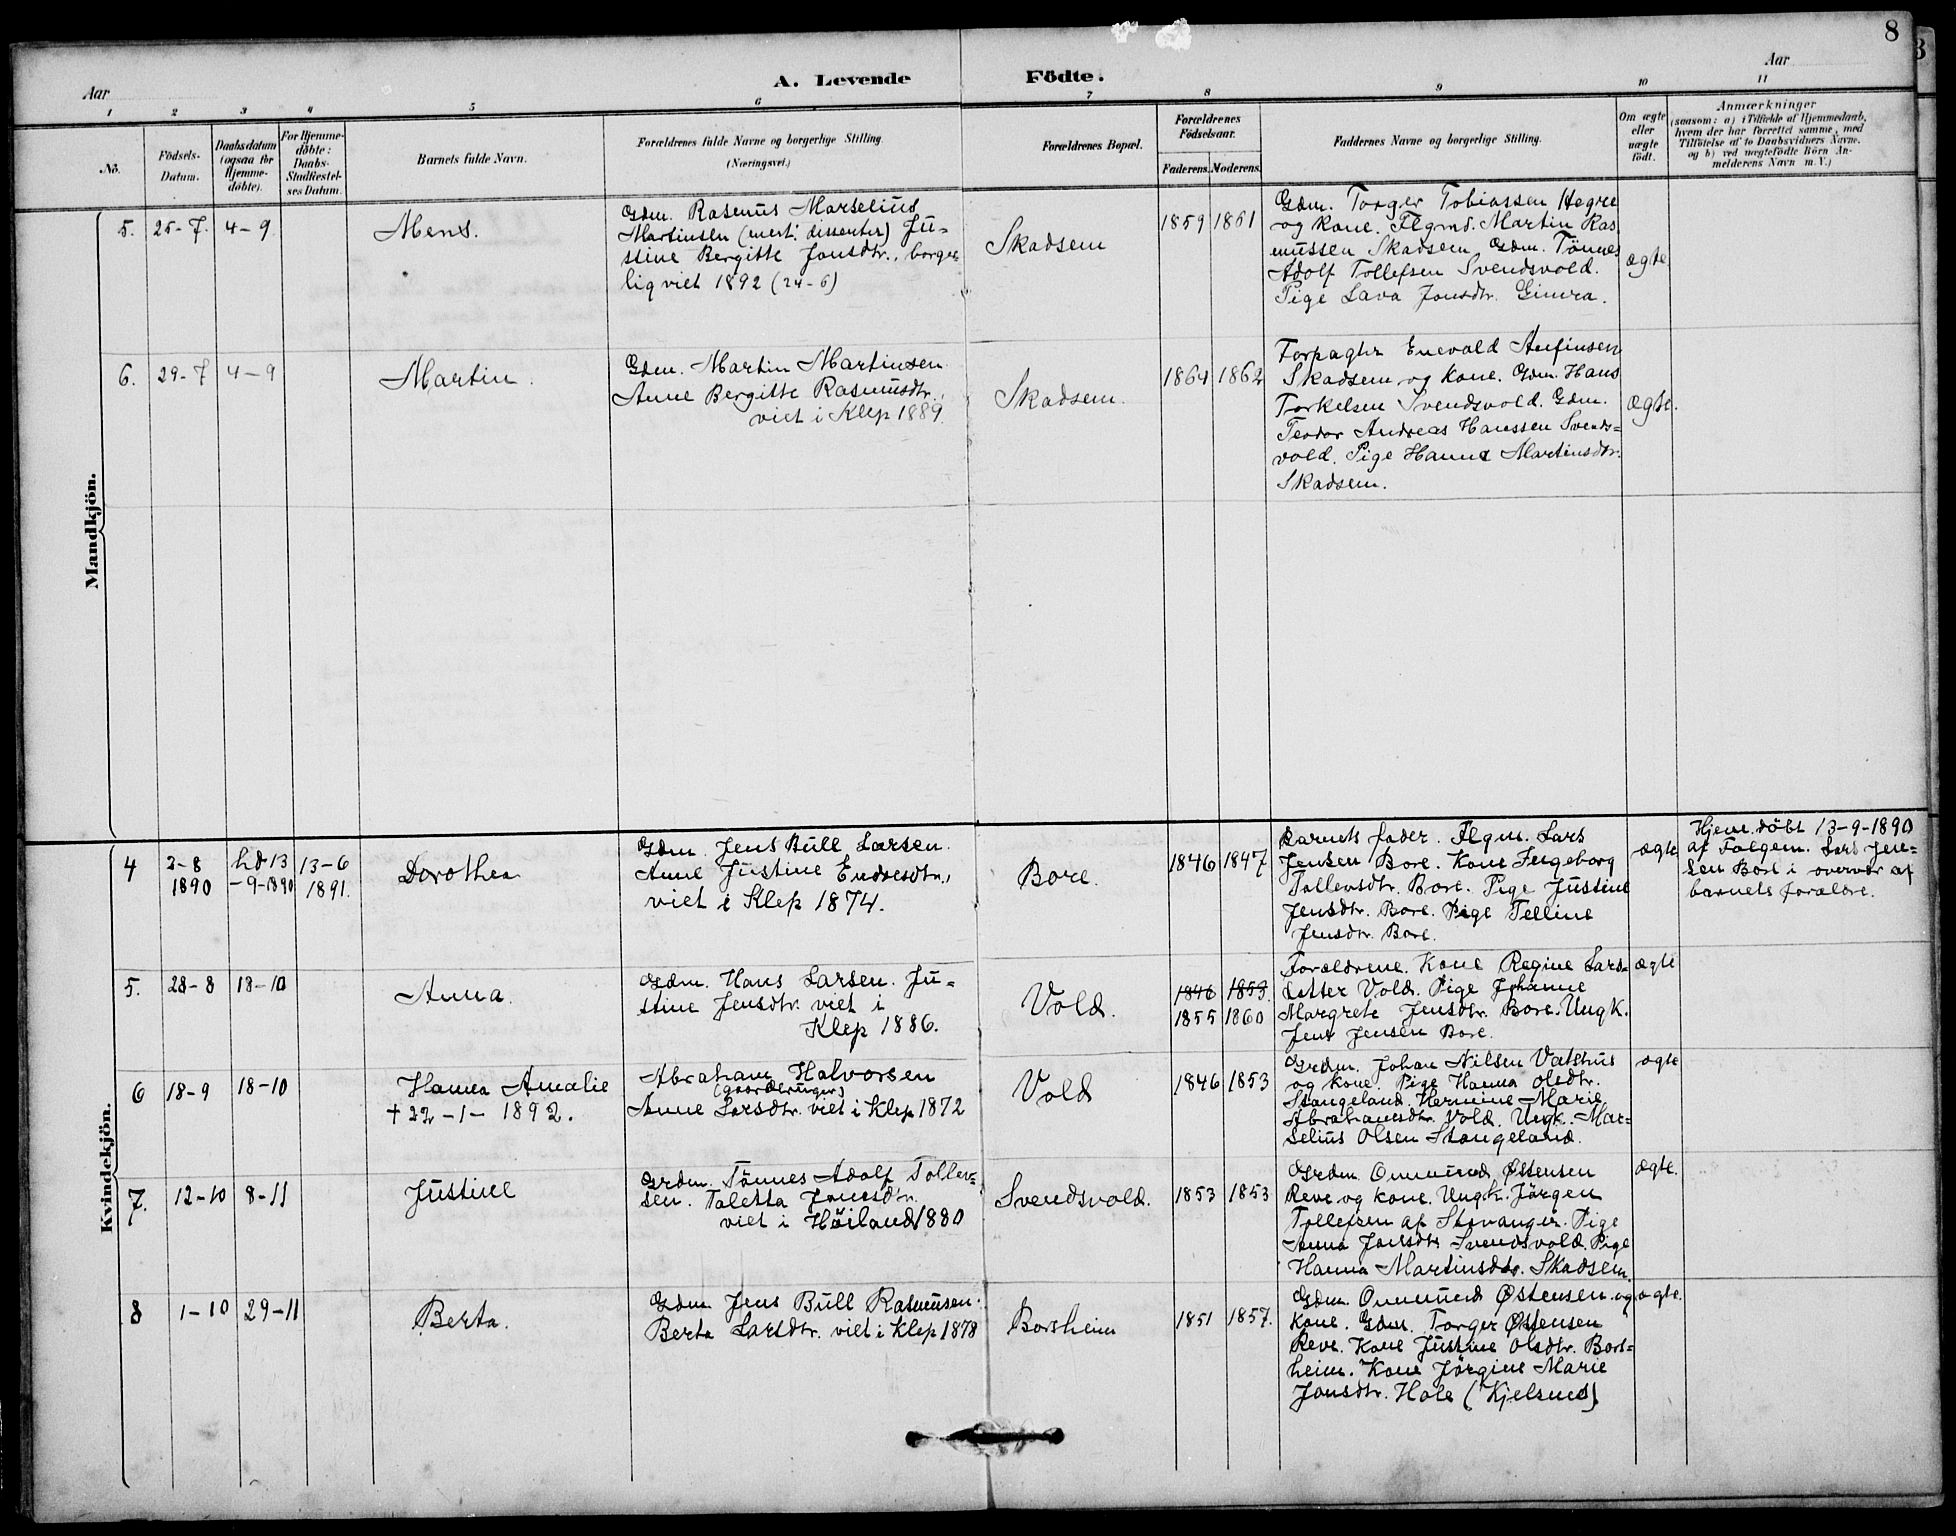 8
Aar
A. Levende Födte.
Aar
1 2 3 4 5 6 7 8 9 10 11
No.
Födsels-
Datum.
Daabsdatum
(ogsaa for
Hjemme-
döbte).
For Hjemme-
döbte:
Daabs-
Stadfæstel-
ses Datum.
Barnets fulde Navn.
Forældrenes fulde Navne og borgerlige Stilling.
(Næringsvei.)
Forældrenes Bopæl.
Forældrenes
Födselsaar.
Faderens. Moderens.
Faddernes Navne og borgerlige Stilling.
Om ægte
eller
uægte
födt.
Anmærkninger
(saasom: a) i Tilfælde af Hjemmedaab,
hvem der har forrettet samme, med
Tilföielse af to Daabsvidners Navne.
og b) ved uægtefödte Börn An-
melderens Navn m. V.)
Mandkjön.
5. 25-7. 4-9
Mens.
Gdm. Rasmus Marselius
Martinsen (mest. dissenter) Ju-
stine Bergitte Jonsdtr., borger-
lig viet 1892 (24-6)
Skadsem
1859 1861
Gdm. Torger Tobiassen Hegre
og kone. Flgmd. Martin Ras
mussen Skadsem Gdm. Tönnes
Adolf Tollefsen Svendsvold.
Pige Lava Jonsdtr. Gimra.
ægte
6. 29-7 4-9
Martin.
Gdm. Martin Martinsen
Anne Bergitte Rasmusdtr.,
viet i Klep 1889.
Skadsem.
1864 1862
Forpagter Enevald Anfinsen
Skadsem og kone. Gdm. Hans
Torkelsen Svendsvold. Gdm.
Teodor Andreas Hanssen Svends-
vold. Pige Hanne Martinsdtr.
Skadsem.
ægte.
Kvindekjön.
4 2-8
1890
hd 13
-9-1890
13-6
1891.
Dorothea
Gdm. Jens Bull Larsen.
Anne Justine Endresdtr.,
viet i Klep 1874.
Bore.
1846 1847
Barnets fader. Flgm. Lars
Jensen Bore. Kone Ingeborg
Tollevsdtr. Bore. Pige Justine
Jensdtr. Bore. Pige Telline
Jensdtr. Bore.
ægte
Hjem. döbt 13-9-1890
af Følgem. Lars Jen-
sen Bore i overvær af
barnets forældre.
5. 28-8 18-10
Anna.
Gdm. Hans Larsen. Ju-
stine Jensdtr. viet i
Klep 1886.
Vold.
1846 1853.
1855 1860
Forældrene. Kone Regine Lars-
datter Vold. Pige Johanne
Margrete Jensdtr. Bore. Ungk.
Jens Jensen Bore.
ægte
6 18-9 18-10
Hanna Amalie
+ 22-1-1892.
Abraham Halvorsen
(gaardbruger)
Anne Larsdtr. viet i Klep 1872
Vold
1846 1853
Grdm. Johan Nilsen Vatshus
og kone. Pige Hanna Olsdtr.
Stangeland. Hermine Marie
Abrahamsdtr. Vold. Ungk. Mar-
selius Olsen Stangeland.
ægte
7. 12-10 8-11
Justine
Grdm. Tönnes Adolf Tollev-
sen. Taletta Jonasdtr.
viet i Höiland 1880
Svendsvold.
1853 1853
Grdm. Ommund Østensen
Reve og kone. Ungk. Jörgen
Tollefsen af Stavanger. Pige
Anna Jonsdtr. Svendsvold. Pige
Hanna Martinsdtr. Skadsem.
ægte.
8 1-10 29-11
Berta.
Gdm. Jens Bull Rasmusen.
Berta Larsdtr. viet i Klep 1878
Borsheim
1851 1857.
Gdm. Ommund Østensen og
kone. Gdm. Torger Østensen
Reve. Kone Justine Olsdtr. Bors-
heim. Kone Jörgine Marie
Jonsdtr. Hole (Kjelsnes)
ægte.